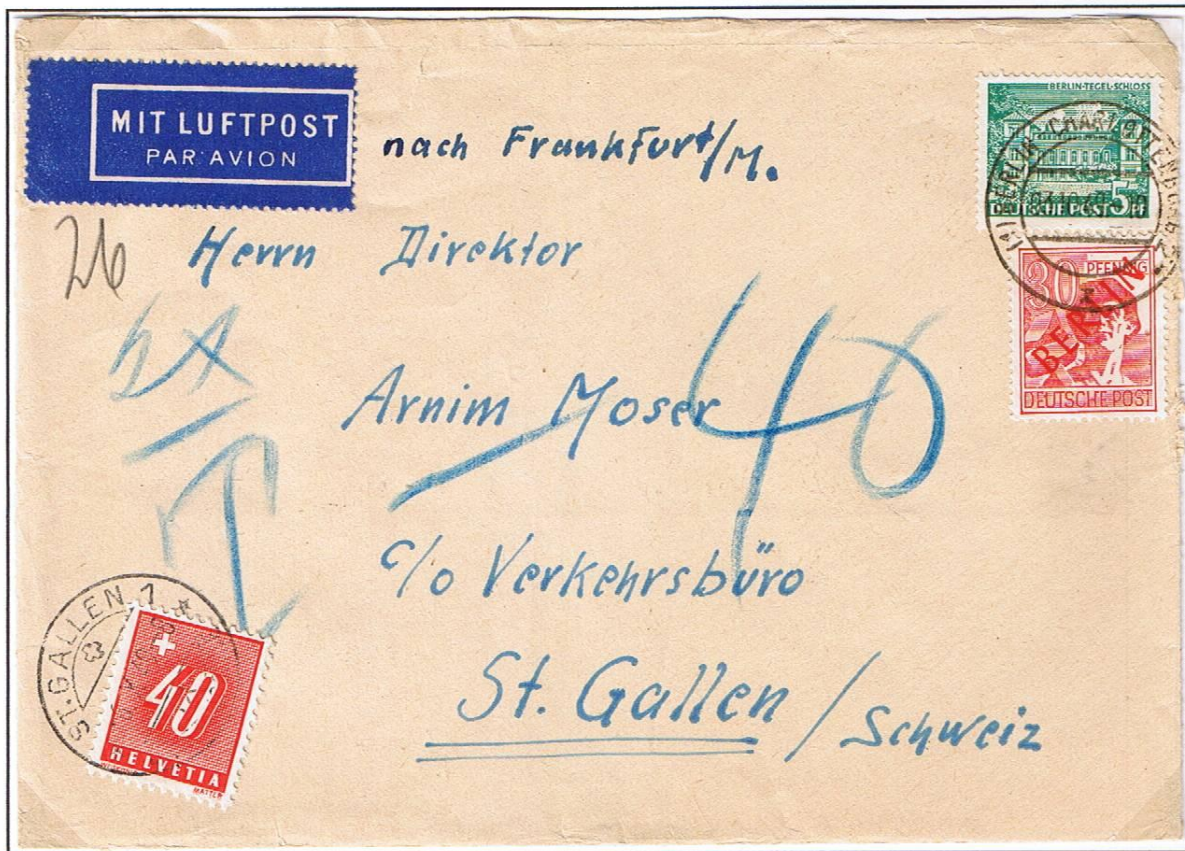 MIT LUFTPOST
PAR AVION
nach Frankfurt/M.
BERLIN-TEGEL-SCHLOSS
DEUTSCHE POST 5 PF
BERLIN CHARLOTTENBURG
30 PFENNIG
BERLIN
DEUTSCHE POST
26
Herrn Direktor
Arnim Moser
40
T
c/o Verkehrsbüro
St. Gallen / Schweiz
ST. GALLEN 1
40
HELVETIA